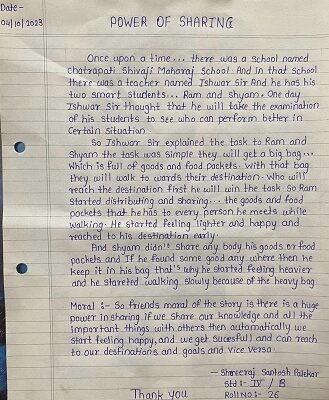 Date-
04/10/2023
POWER OF SHARING
Once upon a time... there was a school named
Chatrapati Shivaji Maharaj School. And in that School
there was a teacher named Ishwar Sir And he has his
two smart students... Ram and shyam. One day
Ishwar Sir thought that he will take the examination
of his students to see who can perform better in
Certain Situation.
So Ishwar Sir explained the task to Ram and
Shyam the task was simple they will get a big bag...
Which is full of goods and food pockets. With that bag
they will walk to wards their destination. Who will
reach the destination first he will win the task. So Ram
Started distributing and sharing... the goods and food
pockets that he has to every person he meets while
walking. He started feeling lighter and happy and
reached to his destination early.
And Shyam didn's share any body his goods or food
pockets and If he found some good any where then he
keep it in his bag that's why he started feeling heavier
and he stareted walking slowly because of the heavy bag
Moral :- So friends moral of the story is there is a huge
power in sharing if we share our knowledge and all the
important things with others then automatically we
start feeling happy, and we get sucessful and can reach
to our destinations and goals and vice versa.
- Shreeraj Santosh Palekar
Std :- IV / B
Roll NO :- 26
Thank you